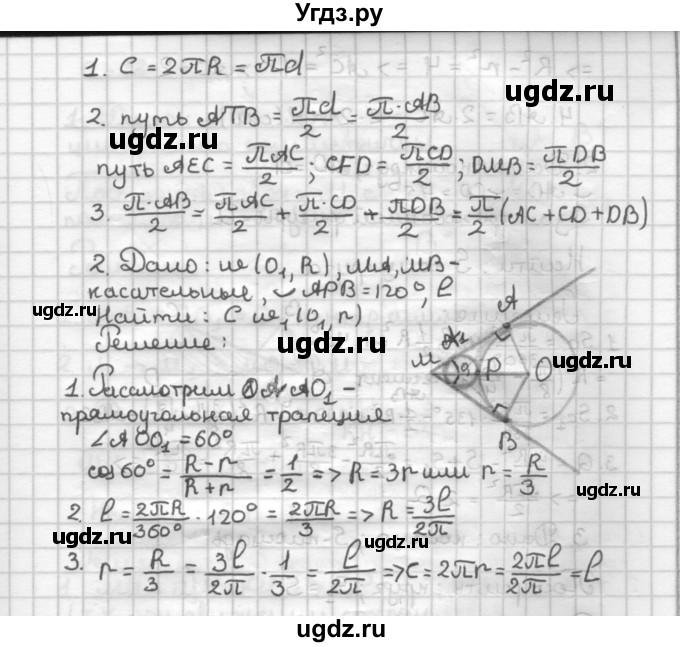 Угдз.ру
1. C = 2πR = πd
2. путь ATB = πd/2 = π·AB/2
путь AEC = πAC/2; CFD = πCD/2; DMB = πDB/2
3. π·AB/2 = πAC/2 + π·CD/2 + πDB/2 = π/2(AC+CD+DB)
2. Дано: (O₁, R), MA, MB -
касательные, ◡ APB = 120°, l
Найти: C (O₁, r)
Решение:
1. Рассмотрим AO₁ -
прямоугольная трапеция
∠AOO₁ = 60°
cos 60° = R-r/R+r = 1/2 => R = 3r или r = R/3
2. l = 2πR/360° · 120° = 2πR/3 => R = 3l/2π
3. r = R/3 = 3l/2π · 1/3 = l/2π => C = 2πr = 2πl/2π = l
M
A
P
O
B
ugdz.ru
ugdz.ru
ugdz.ru
ugdz.ru
ugdz.ru
ugdz.ru
ugdz.ru
ugdz.ru